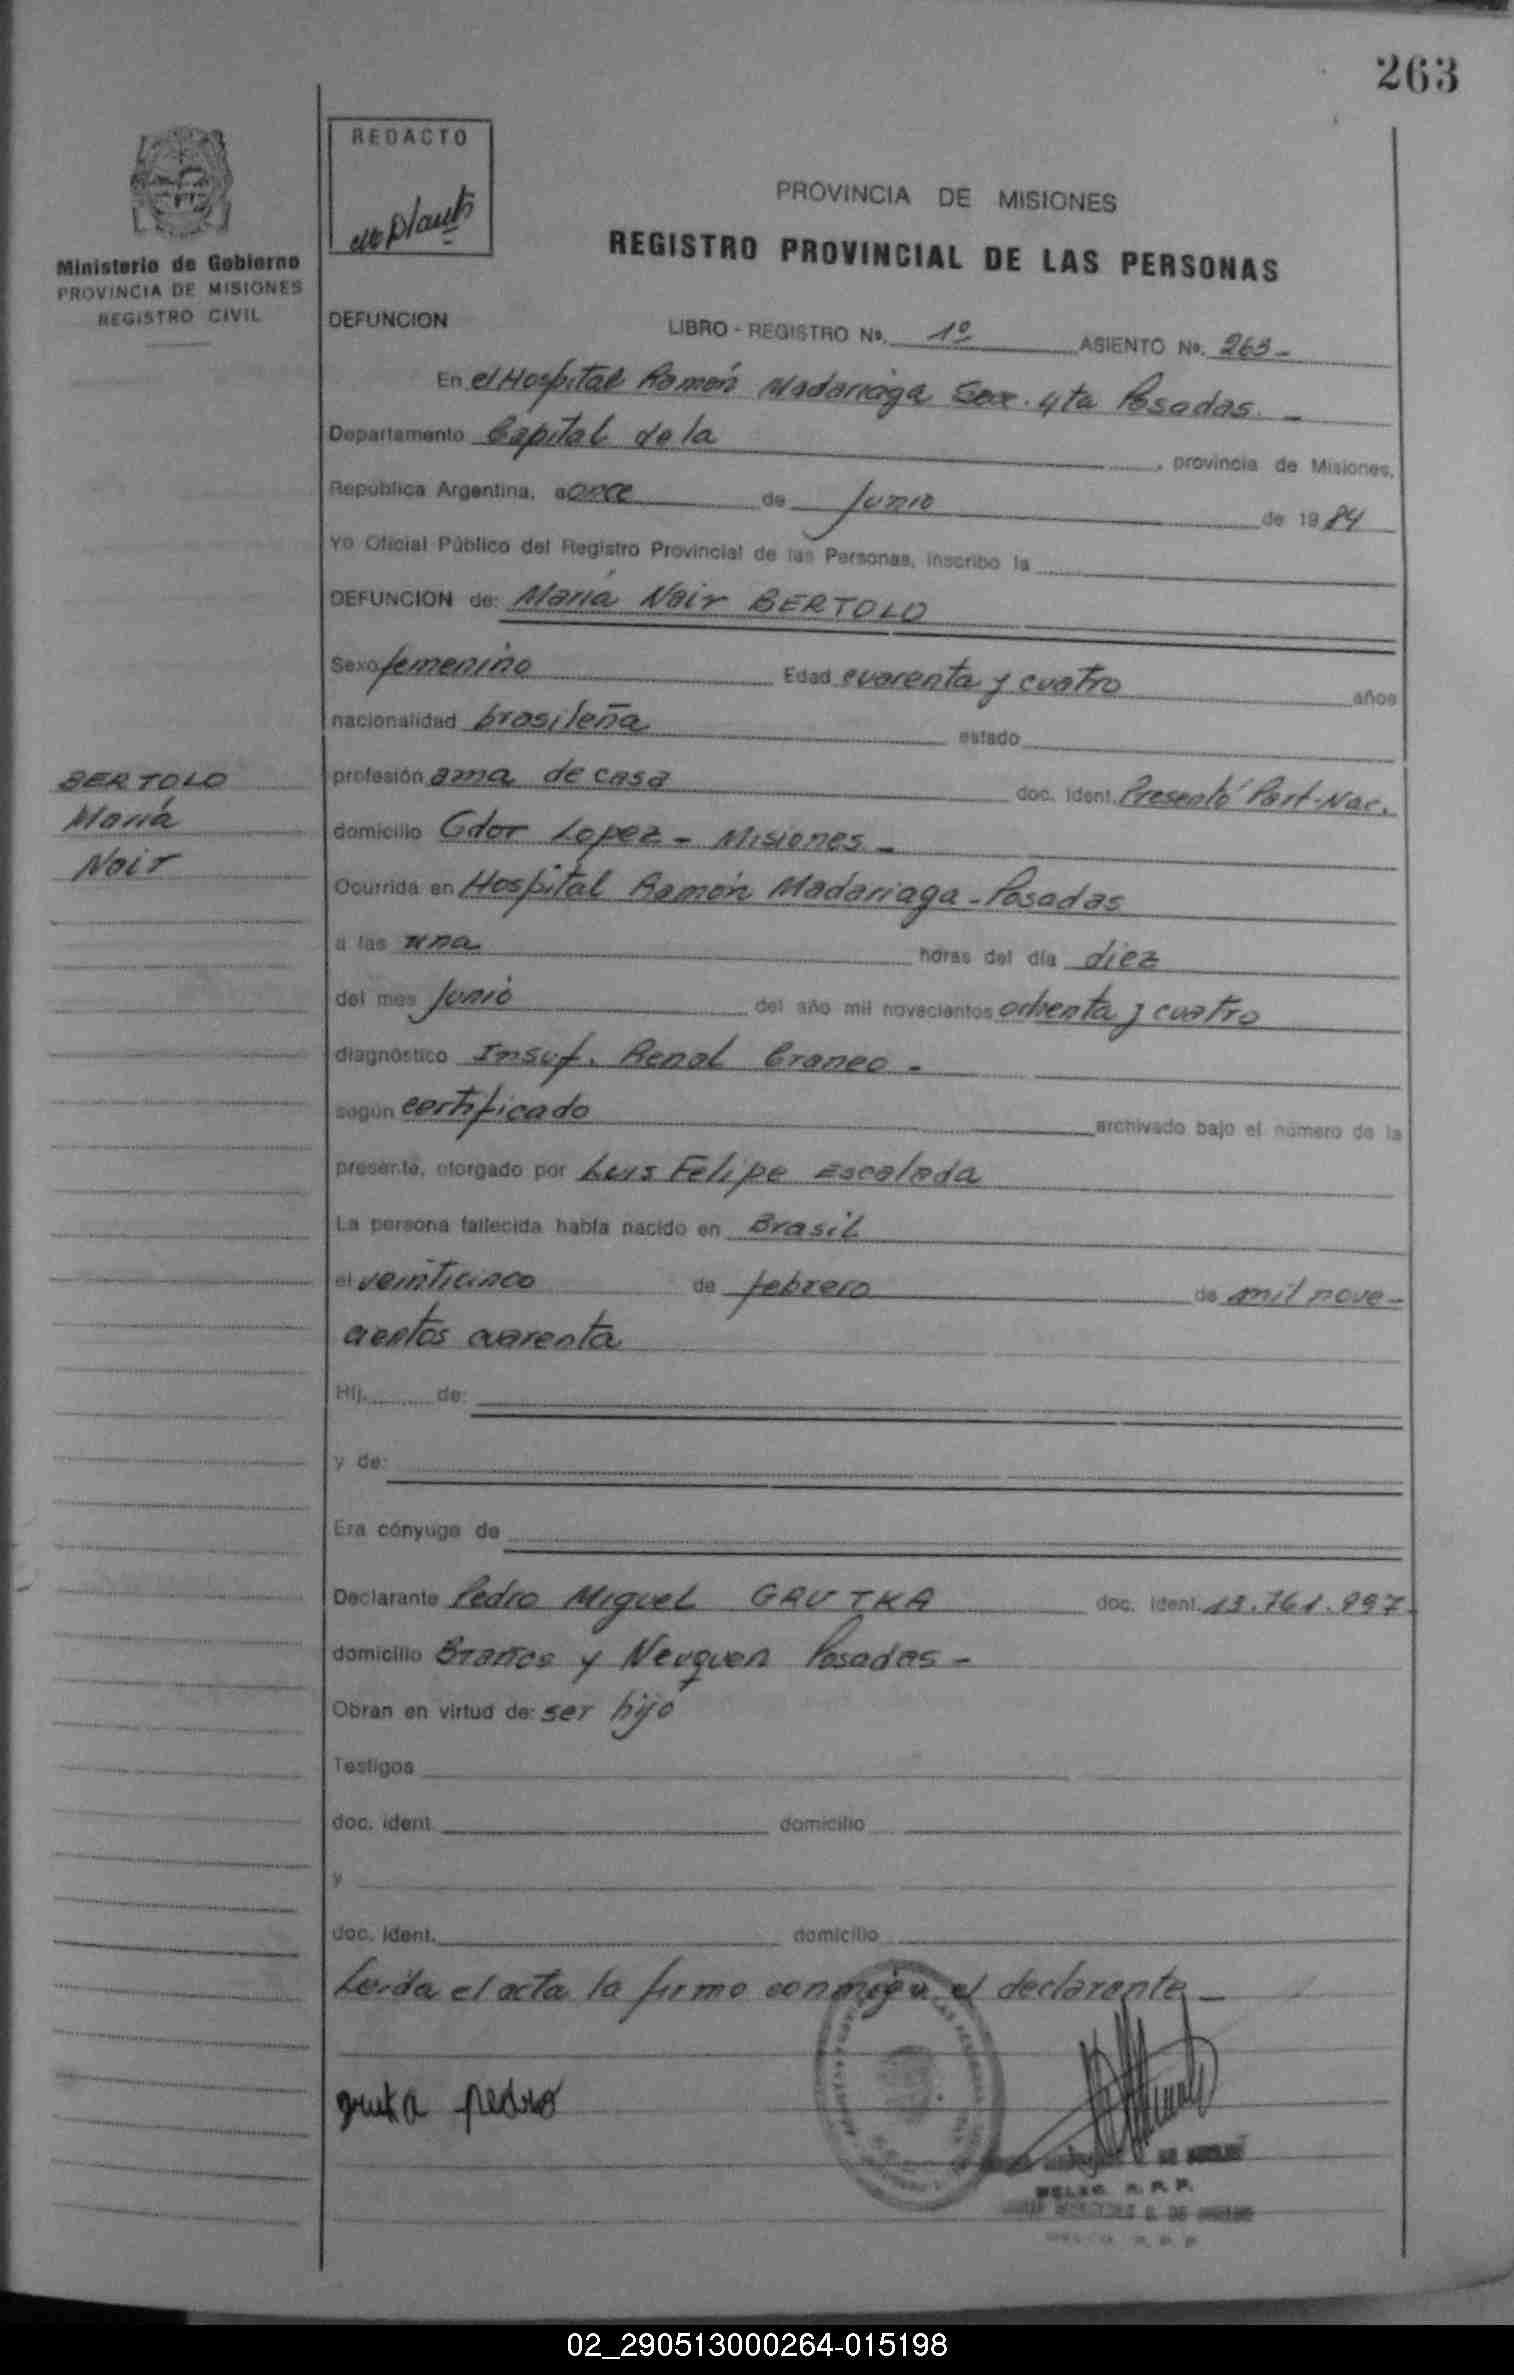 263
REDACTO
Ministerio de Gobierno
PROVINCIA DE MISIONES
REGISTRO CIVIL
PROVINCIA DE MISIONES
REGISTRO PROVINCIAL DE LAS PERSONAS
DEFUNCION LIBRO - REGISTRO Nº. 1º ASIENTO Nº. 263-
En el Hospital Ramón Madariaga Secc. 4ta Posadas. -
Departamento Capital de la , provincia de Misiones,
República Argentina, a once de Junio de 1984
Yo Oficial Público del Registro Provincial de las Personas, inscribo la
DEFUNCION de: María Nair BERTOLO
Sexo femenino Edad cuarenta y cuatro años
nacionalidad brasileña estado
profesión ama de casa doc. ident. Presentó Part-Nac.
domicilio Gdor Lopez - Misiones -
Ocurrida en Hospital Ramón Madariaga - Posadas
a las una horas del día diez
del mes Junio del año mil novecientos ochenta y cuatro
diagnóstico Insuf. Renal Craneo -
según certificado archivado bajo el número de la
presente, otorgado por Luis Felipe Escalada
La persona fallecida había nacido en Brasil
el veinticinco de febrero de mil nove-
cientos cuarenta
Hij. de:
y de:
Era cónyuge de
Declarante Pedro Miguel GRUTKA doc. ident. 13.761.997
domicilio y Neuquen Posadas -
Obran en virtud de: ser hijo
Testigos
doc. ident. domicilio
y
doc. ident. domicilio
Leída el acta la firma conmigo el declarante -
pedro
DELEG. R. P. P.
BERTOLO
María
Nair
02_290513000264-015198